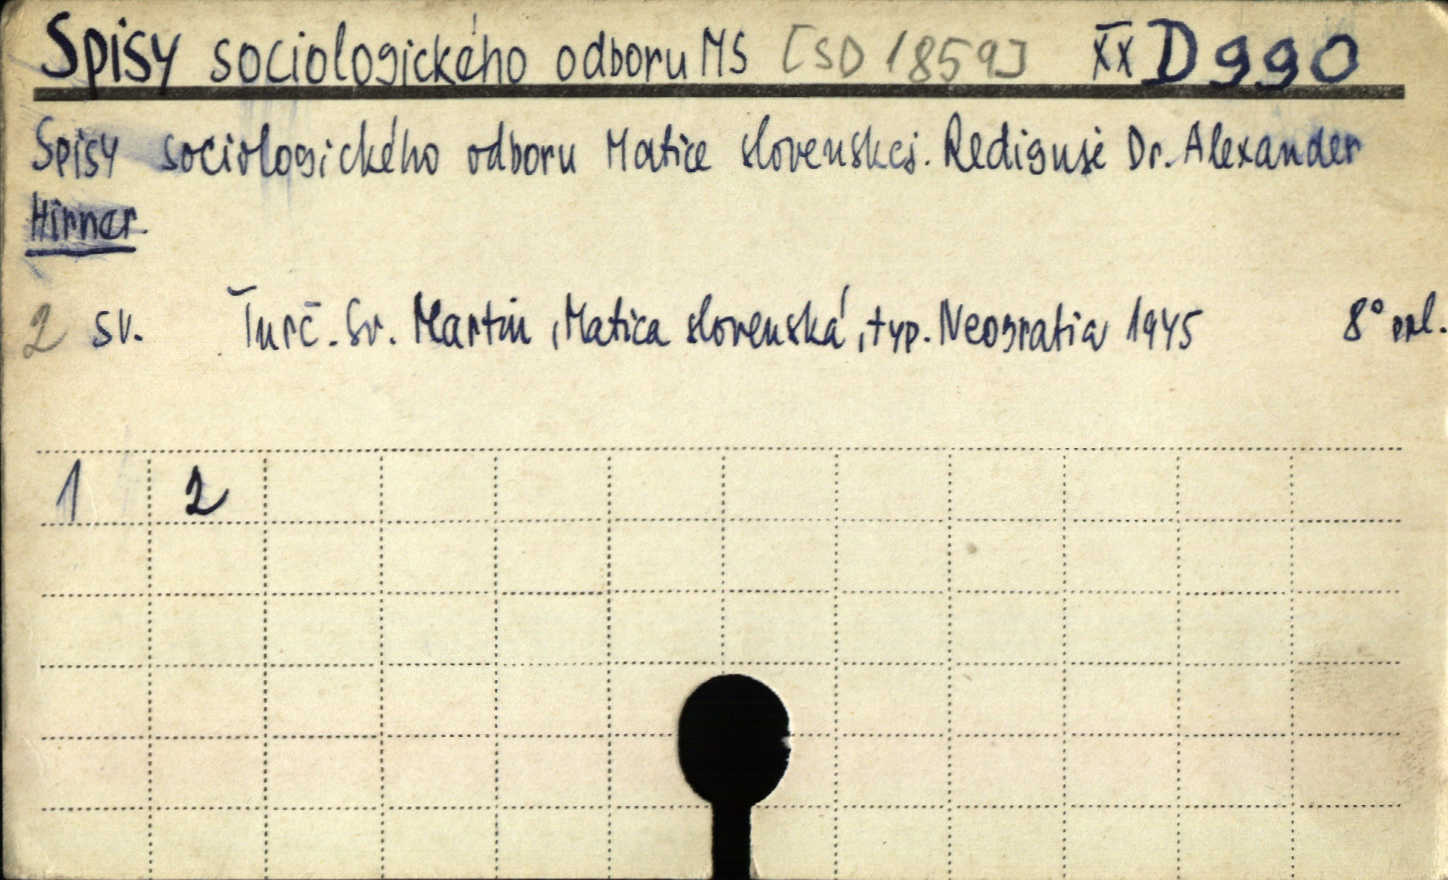 Spisy sociologického odboru MS [SD 1859] XX D 990
Spisy sociologického odboru Matice slovenskej. Rediguje Dr. Alexander
Hirner.
2 sv. Turč. Sv. Martin, Matica slovenská, typ. Neografia 1945 8°
1 2